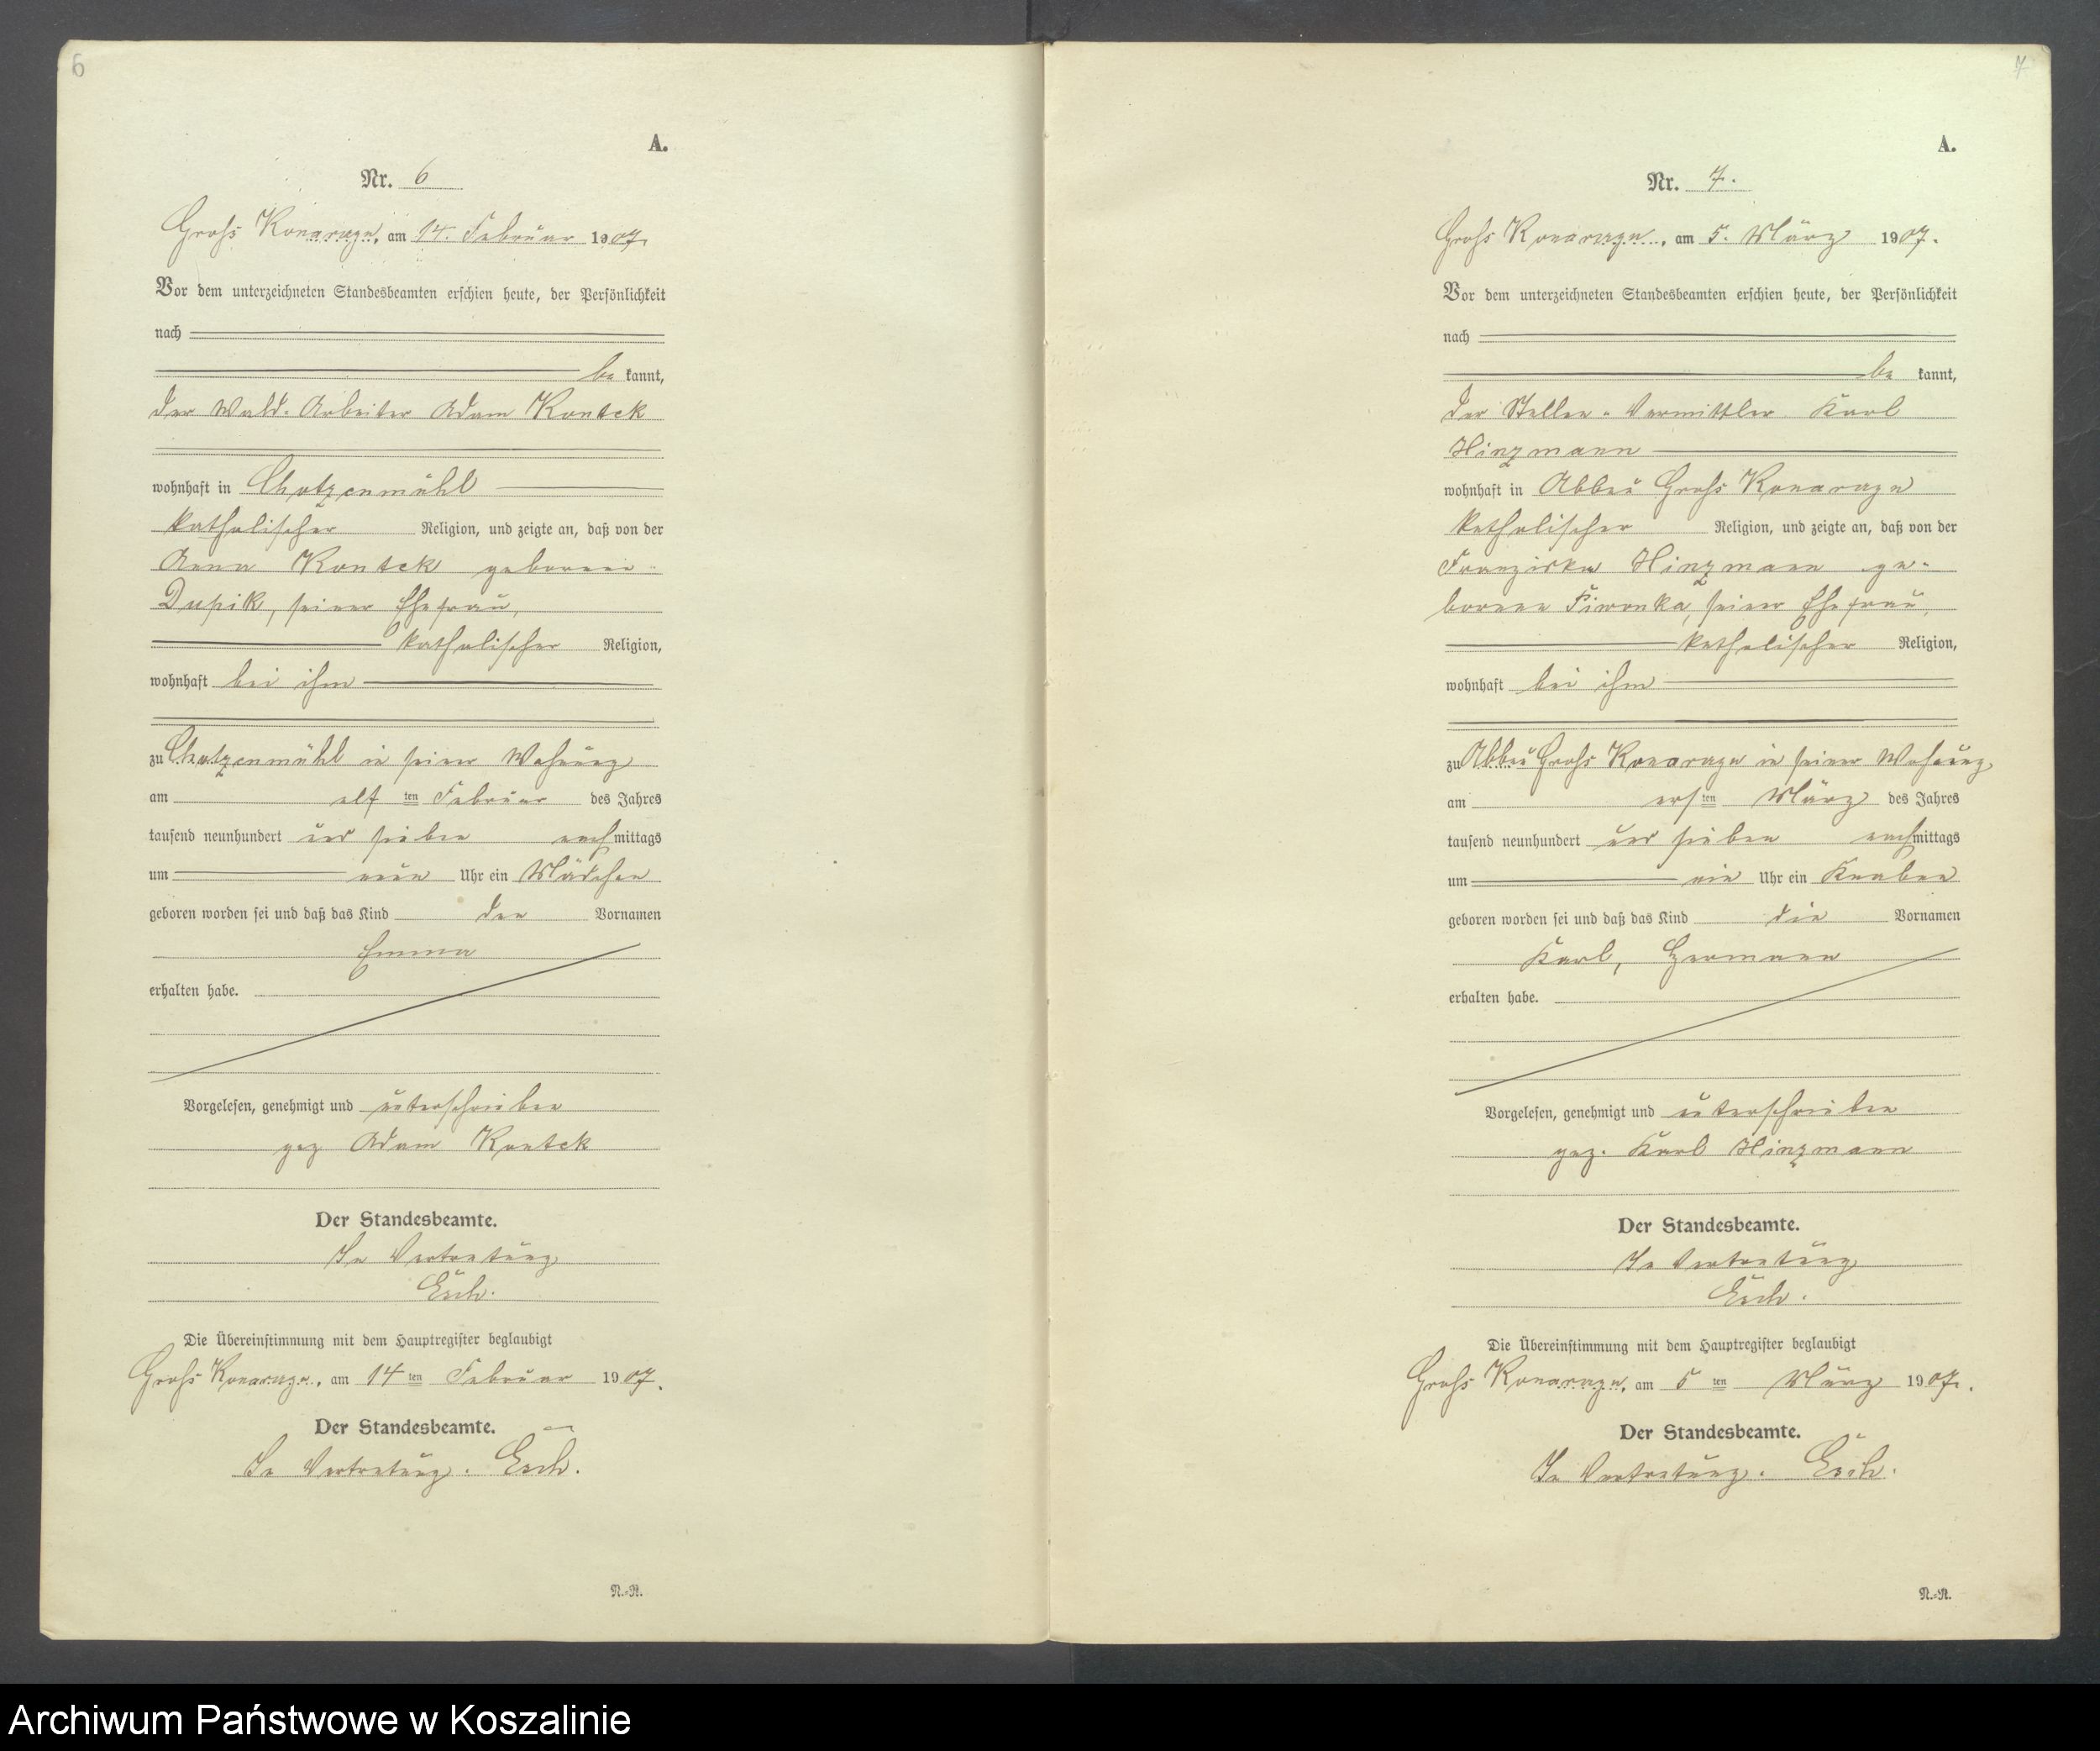 6
A.
Nr. 6
Groß Konarzyn, am 14. Februar 1907.
Vor dem unterzeichneten Standesbeamten erschien heute, der Persönlichkeit
nach
be kannt,
der Wald-Arbeiter Adam Kontek
wohnhaft in Chotzenmühl
katholischer Religion, und zeigte an, daß von der
Anna Kontek geborene
seiner Ehefrau,
katholischer Religion,
wohnhaft bei ihm
zu Chotzenmühl in seiner Wohnung
am elf ten Februar des Jahres
tausend neunhundert und sieben nachmittags
um neun Uhr ein Mädchen
geboren worden sei und daß das Kind den Vornamen
Emma
erhalten habe.
Vorgelesen, genehmigt und unterschrieben
gez Adam Kontek
Der Standesbeamte.
In Vertretung
Esch.
Die Übereinstimmung mit dem Hauptregister beglaubigt
Groß Konarzyn, am 14 ten Februar 1907.
Der Standesbeamte.
In Vertretung. Esch.
N.-R.
7
A.
Nr. 7.
Groß Konarzyn, am 5. März 1907.
Vor dem unterzeichneten Standesbeamten erschien heute, der Persönlichkeit
nach
be kannt,
der Stellen-Vermittler Karl
Hinzmann
wohnhaft in Abbau Groß Konarzyn
katholischer Religion, und zeigte an, daß von der
Franziska Hinzmann ge-
borene seiner Ehefrau,
katholischer Religion,
wohnhaft bei ihm
zu Abbau Groß Konarzyn in seiner Wohnung
am ersten März des Jahres
tausend neunhundert und sieben nachmittags
um ein Uhr ein Knaben
geboren worden sei und daß das Kind die Vornamen
Karl, Hermann
erhalten habe.
Vorgelesen, genehmigt und unterschrieben
gez. Karl Hinzmann
Der Standesbeamte.
In Vertretung
Esch.
Die Übereinstimmung mit dem Hauptregister beglaubigt
Groß Konarzyn, am 5 ten März 1907.
Der Standesbeamte.
In Vertretung. Esch.
N.-R.
Archiwum Państwowe w Koszalinie